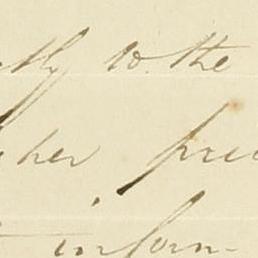 tly to the
her pre
inform-